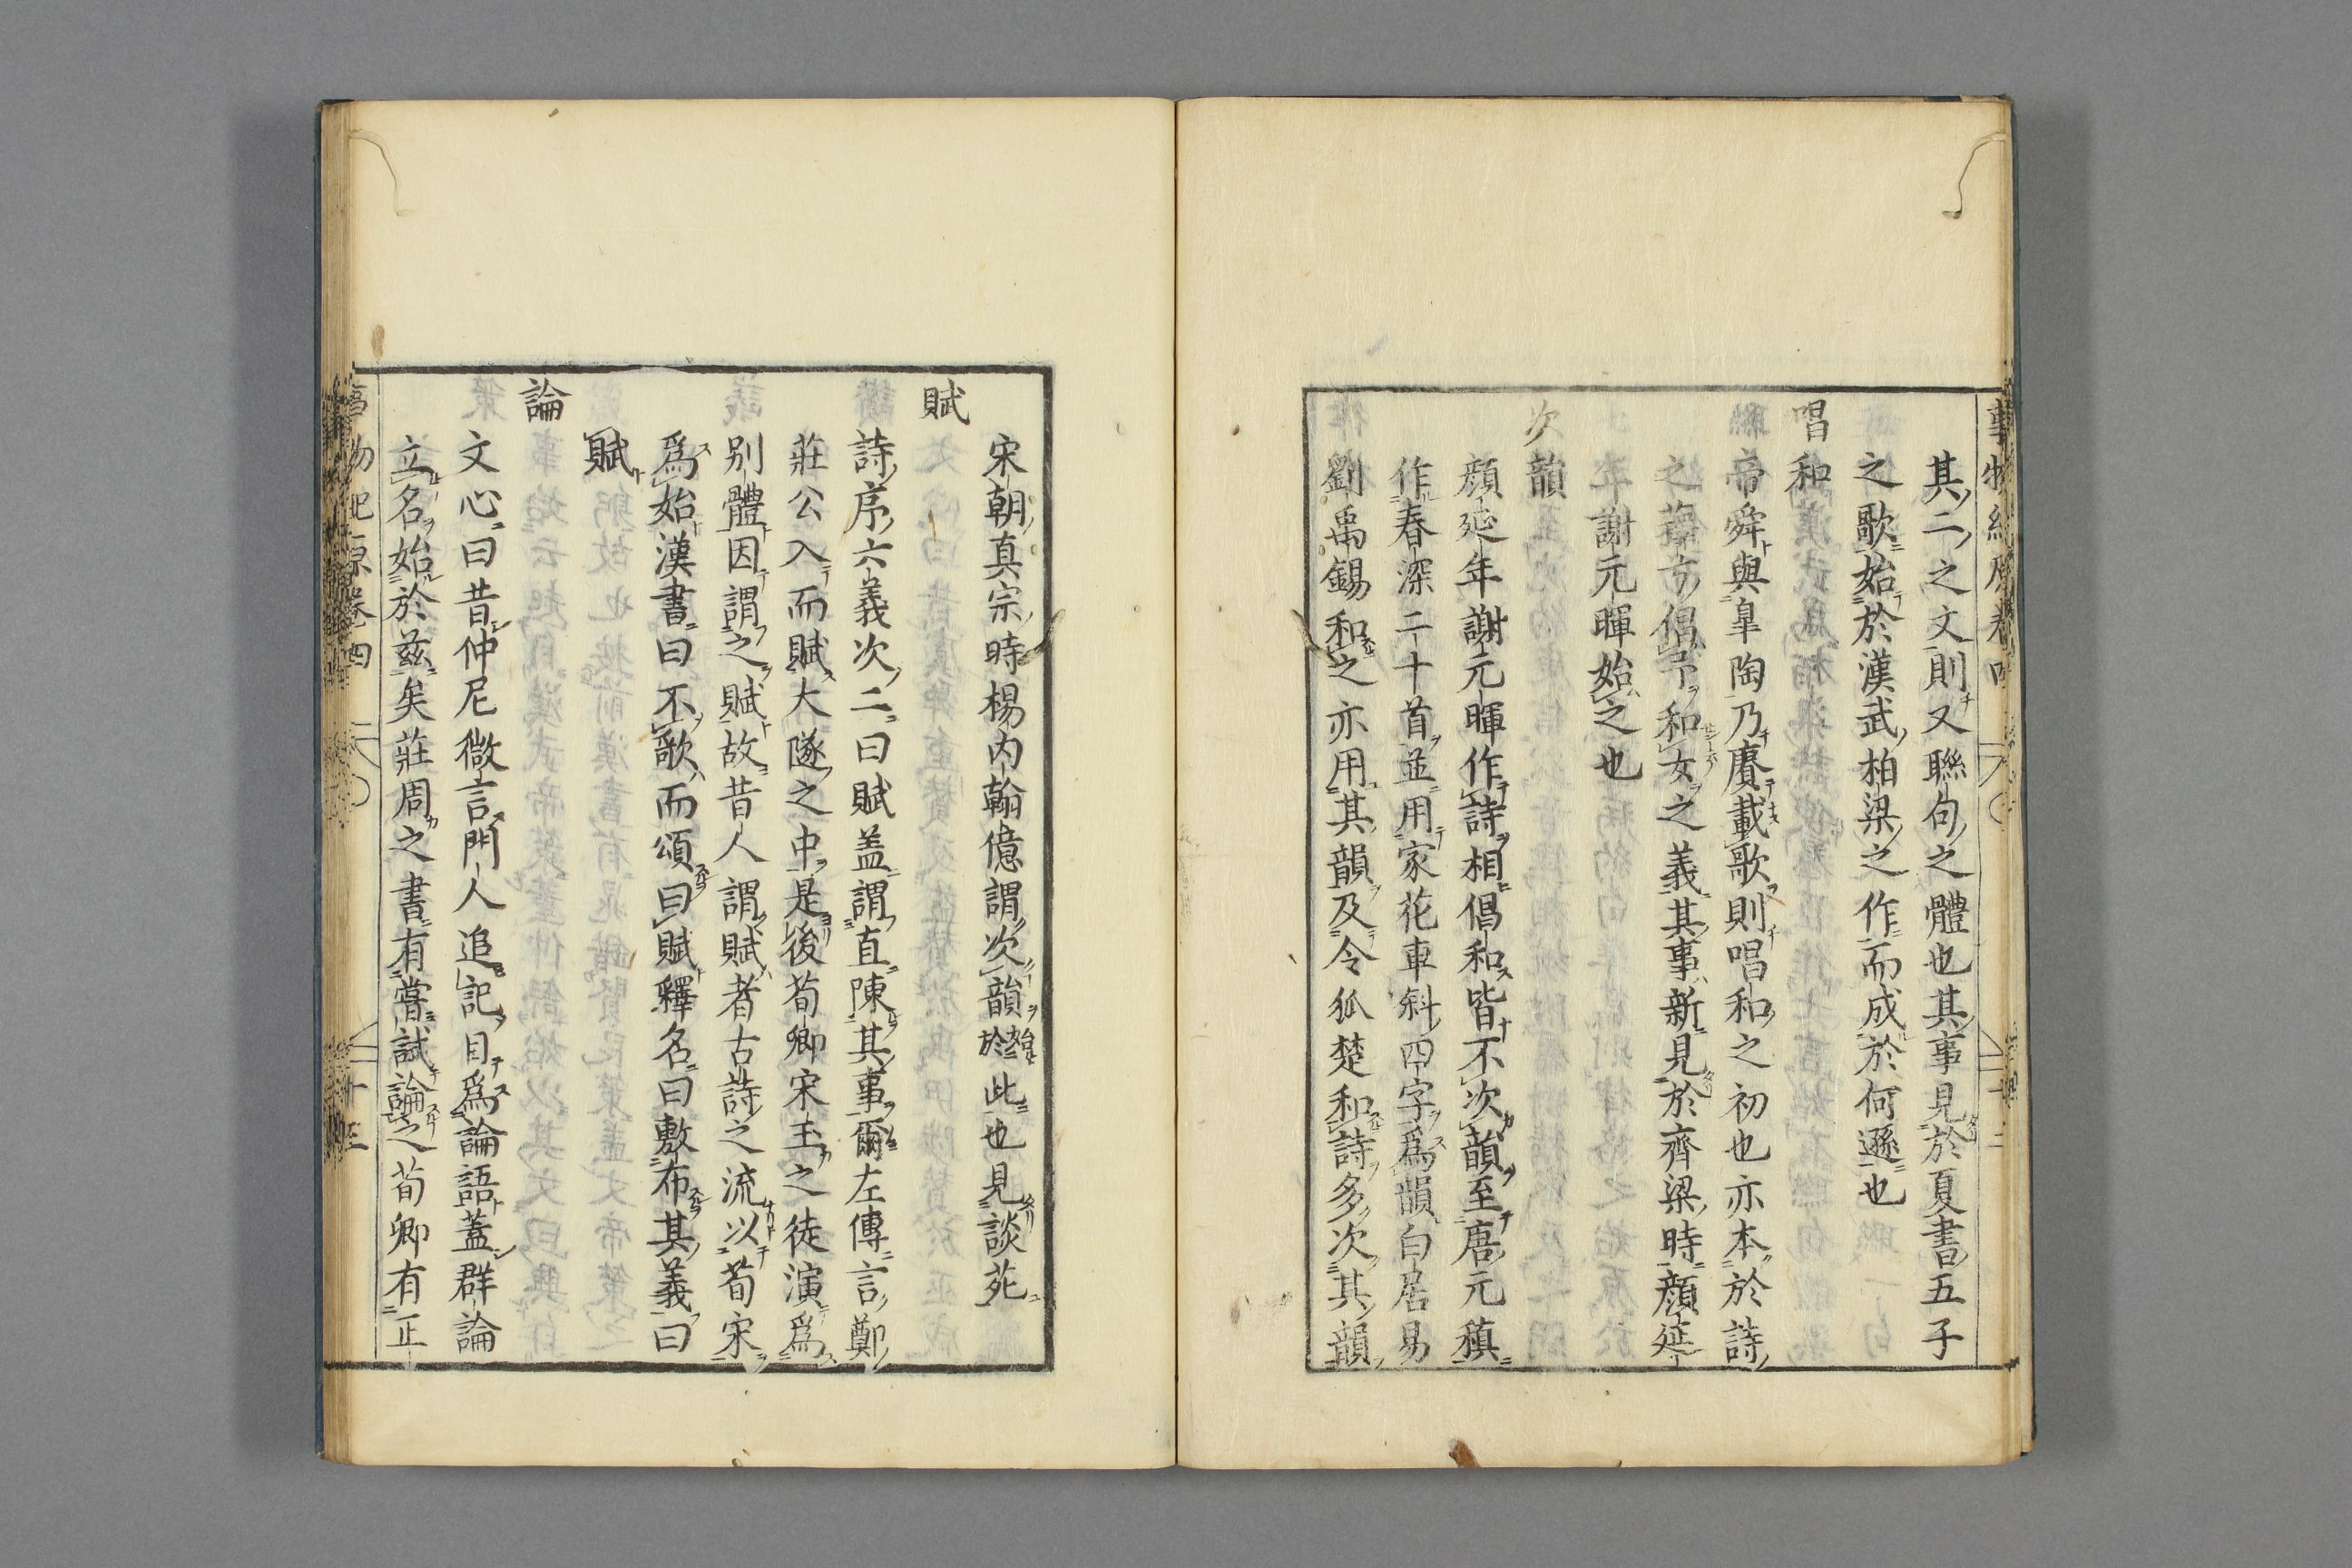 其二之文則又聯句之體也其事見於夏書五子
之歌始於漢武柏梁之作而成於何遜也
唱和
帝舜與皐陶乃賡載歌則唱和之初也亦本於詩
之蘀兮倡予和女之義其事新見於齊梁時顔延
年謝元暉始之也
次韻
顔延年謝元暉作詩相倡和皆不次韻至唐元稹
作春深二十首並用家花車斜四字爲韻白居易
劉禹錫和之亦用其韻及令狐楚和詩多次其韻
宋朝真宗時楊内翰億謂次韻始於此也見談苑
賦
詩序六義次二曰賦盖謂直陳其事爾左傳言鄭
莊公入而賦大隧之中是後荀卿宋玉之徒演爲
别體因謂之賦故昔人謂賦者古詩之流以荀宋
爲始漢書曰不歌而頌曰賦釋名曰敷布其義曰
賦
論
文心曰昔仲尼微言門人追記目爲論語蓋群論
立名始於兹矣莊周之書有嘗試論之荀卿有正